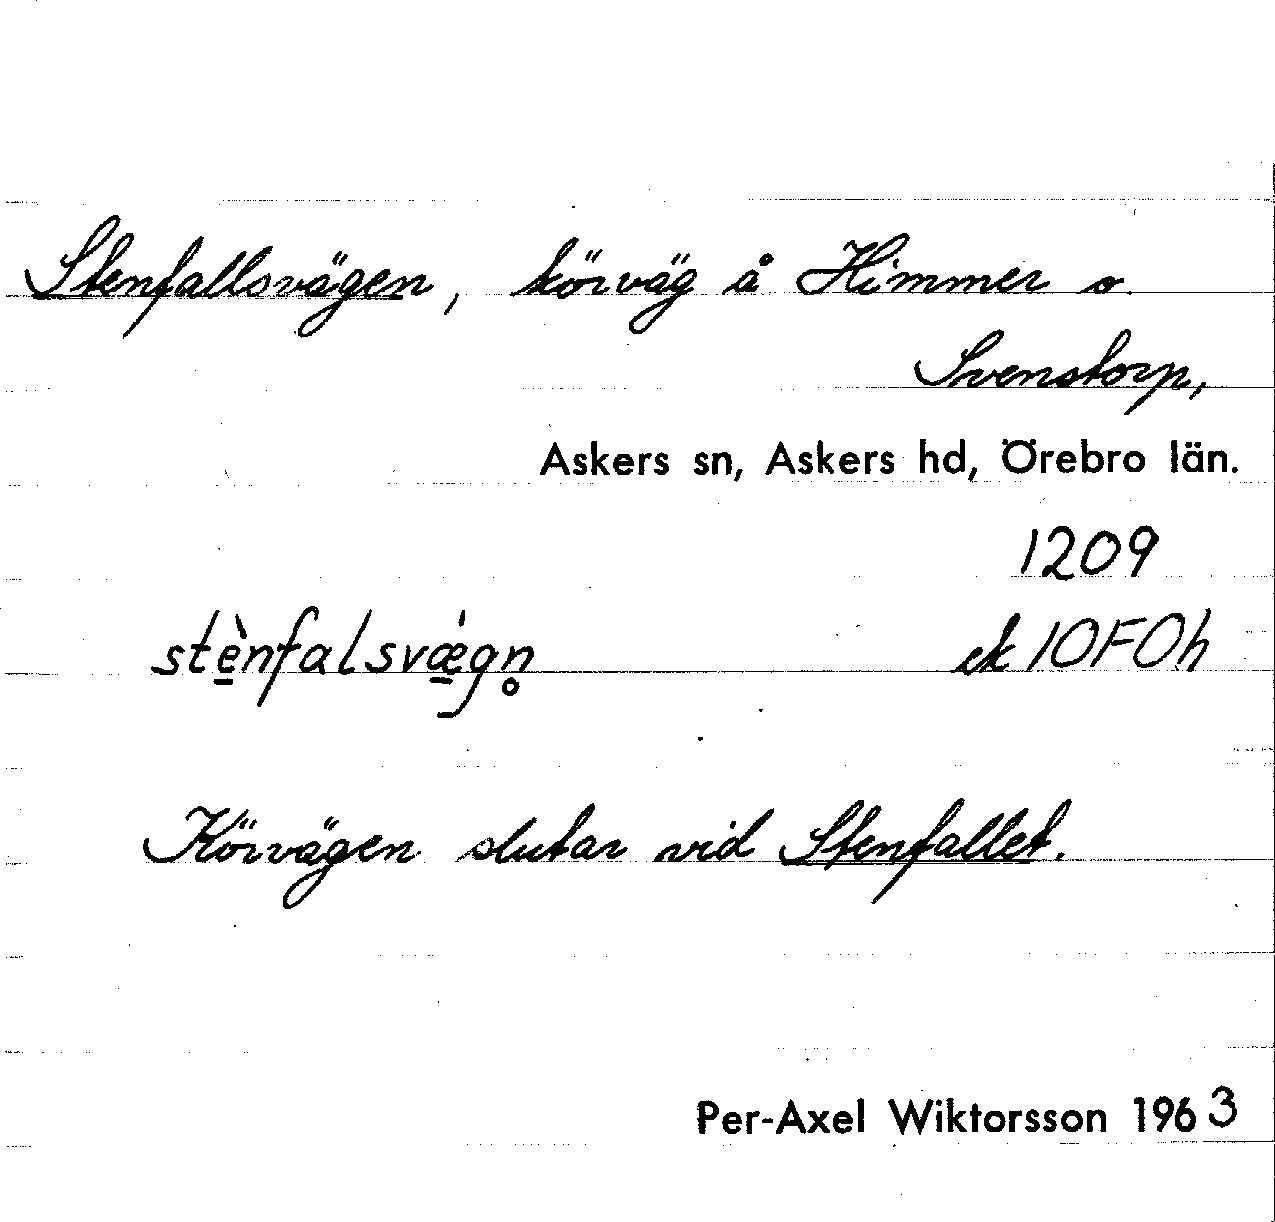 Stenfallsvägen, körväg å Himmer o.
Svenstorp,
Askers sn, Askers hd, Örebro län.
1209
stè̱nfalsvǽ̱gn̥ ek 10F0h
Körvägen slutar vid Stenfallet.
Per-Axel Wiktorsson 1963